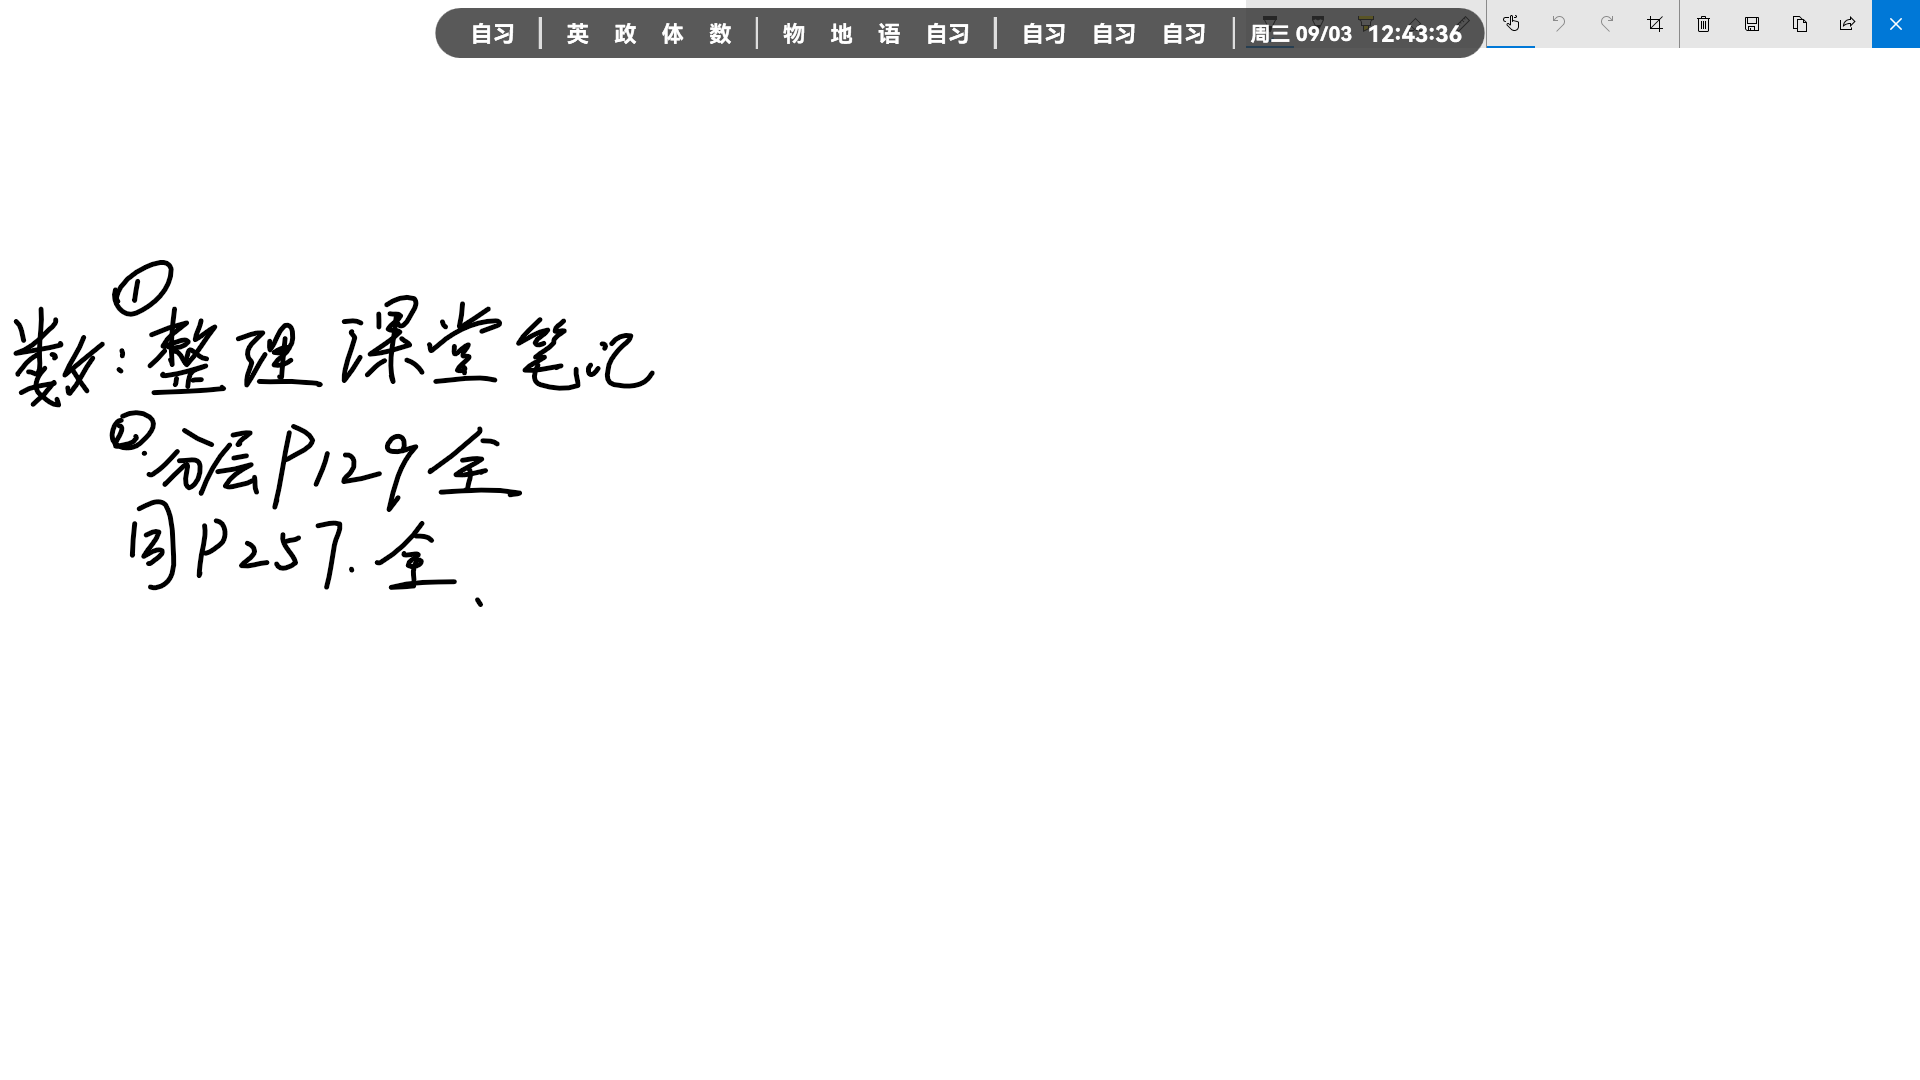 自习 | 英 政 体 数 | 物 地 语 自习 | 自习 自习 自习 | 周三 09/03 12:43:36
数:①整理课堂笔记
②分层P129全
同P257.全、